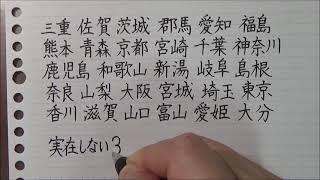 三重 佐賀 茨城 郡馬 愛知 福島
熊本 青森 京都 宮崎 千葉 神奈川
鹿児島 和歌山 新湯 岐阜 島根
奈良 山梨 大阪 宮城 埼玉 東京
香川 滋賀 山口 富山 愛姫 大分
実在しない3